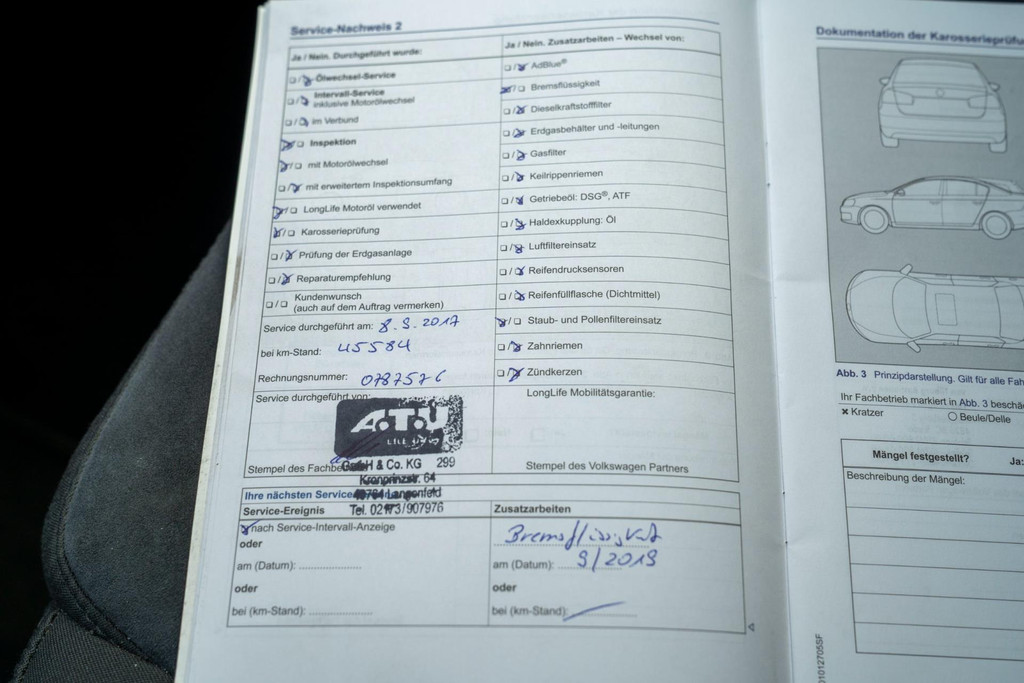 Service-Nachweis 2
Ja / Nein. Durchgeführt wurde:
Ölwechsel-Service
Intervall-Service
inklusive Motorölwechsel
im Verbund
Inspektion
mit Motorölwechsel
mit erweitertem Inspektionsumfang
LongLife Motoröl verwendet
Karosserieprüfung
Prüfung der Erdgasanlage
Reparaturempfehlung
Kundenwunsch
(auch auf dem Auftrag vermerken)
Service durchgeführt am: 8.9.2017
bei km-Stand: 45584
Rechnungsnummer: 0787576
Service durchgeführt von:
A.T.U
GmbH & Co. KG 299
Stempel des
Kronprinzstr. 64
Langenfeld
Tel. 02173/907976
Ja / Nein. Zusatzarbeiten – Wechsel von:
AdBlue®
Bremsflüssigkeit
Dieselkraftstofffilter
Erdgasbehälter und -leitungen
Gasfilter
Keilrippenriemen
Getriebeöl: DSG®, ATF
Haldexkupplung: Öl
Luftfiltereinsatz
Reifendrucksensoren
Reifenfüllflasche (Dichtmittel)
Staub- und Pollenfiltereinsatz
Zahnriemen
Zündkerzen
LongLife Mobilitätsgarantie:
Stempel des Volkswagen Partners
Ihre nächsten
Service-Ereignis
nach Service-Intervall-Anzeige
oder
am (Datum):
oder
bei (km-Stand):
Zusatzarbeiten
Bremsflüssigkeit
am (Datum): 9/2019
oder
bei (km-Stand):
Dokumentation der
Abb. 3 Prinzipdarstellung. Gilt für alle
Ihr Fachbetrieb markiert in Abb. 3
x Kratzer
O Beule/Delle
Mängel festgestellt? Ja:
Beschreibung der Mängel: